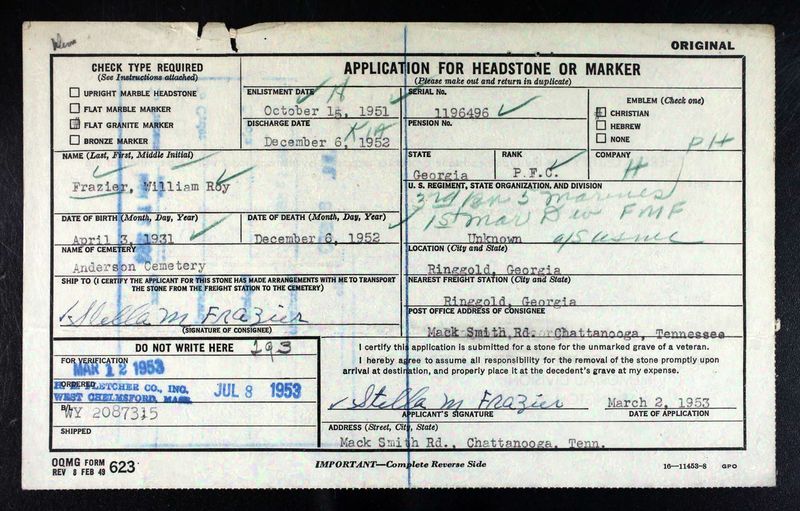 ORIGINAL
CHECK TYPE REQUIRED
(See Instructions attached)
UPRIGHT MARBLE HEADSTONE
FLAT MARBLE MARKER
FLAT GRANITE MARKER
BRONZE MARKER
APPLICATION FOR HEADSTONE OR MARKER
(Please make out and return in duplicate)
ENLISTMENT DATE
October 15, 1951
SERIAL No.
1196496
EMBLEM (Check one)
CHRISTIAN
HEBREW
NONE
DISCHARGE DATE
KIA
December 6, 1952
PENSION No.
NAME (Last, First, Middle Initial)
Frazier, William Roy
STATE
Georgia
RANK
P.F.C.
COMPANY
H
PH
U. S. REGIMENT, STATE ORGANIZATION, AND DIVISION
3rd Bn 5 Marines
1st Mar Div FMF
Unknown
DATE OF BIRTH (Month, Day, Year)
April 3, 1931
DATE OF DEATH (Month, Day, Year)
December 6, 1952
NAME OF CEMETERY
Anderson Cemetery
LOCATION (City and State)
Ringgold, Georgia
SHIP TO (I CERTIFY THE APPLICANT FOR THIS STONE HAS MADE ARRANGEMENTS WITH ME TO TRANSPORT
THE STONE FROM THE FREIGHT STATION TO THE CEMETERY)
Stella M Frazier
(SIGNATURE OF CONSIGNEE)
NEAREST FREIGHT STATION (City and State)
Ringgold, Georgia
POST OFFICE ADDRESS OF CONSIGNEE
Mack Smith Rd. Chattanooga, Tennessee
DO NOT WRITE HERE
FOR VERIFICATION
MAR 12 1953
ORDERED
H. E. FLETCHER CO., INC.
WEST CHELMSFORD, MASS.
JUL 8 1953
B/L
WY 2087315
SHIPPED
I certify this application is submitted for a stone for the unmarked grave of a veteran.
I hereby agree to assume all responsibility for the removal of the stone promptly upon
arrival at destination, and properly place it at the decedent's grave at my expense.
Stella M Frazier
March 2, 1953
APPLICANT'S SIGNATURE
DATE OF APPLICATION
ADDRESS (Street, City, State)
Mack Smith Rd., Chattanooga, Tenn.
OQMG FORM
REV 8 FEB 49 623
IMPORTANT—Complete Reverse Side
16—11453-8 GPO